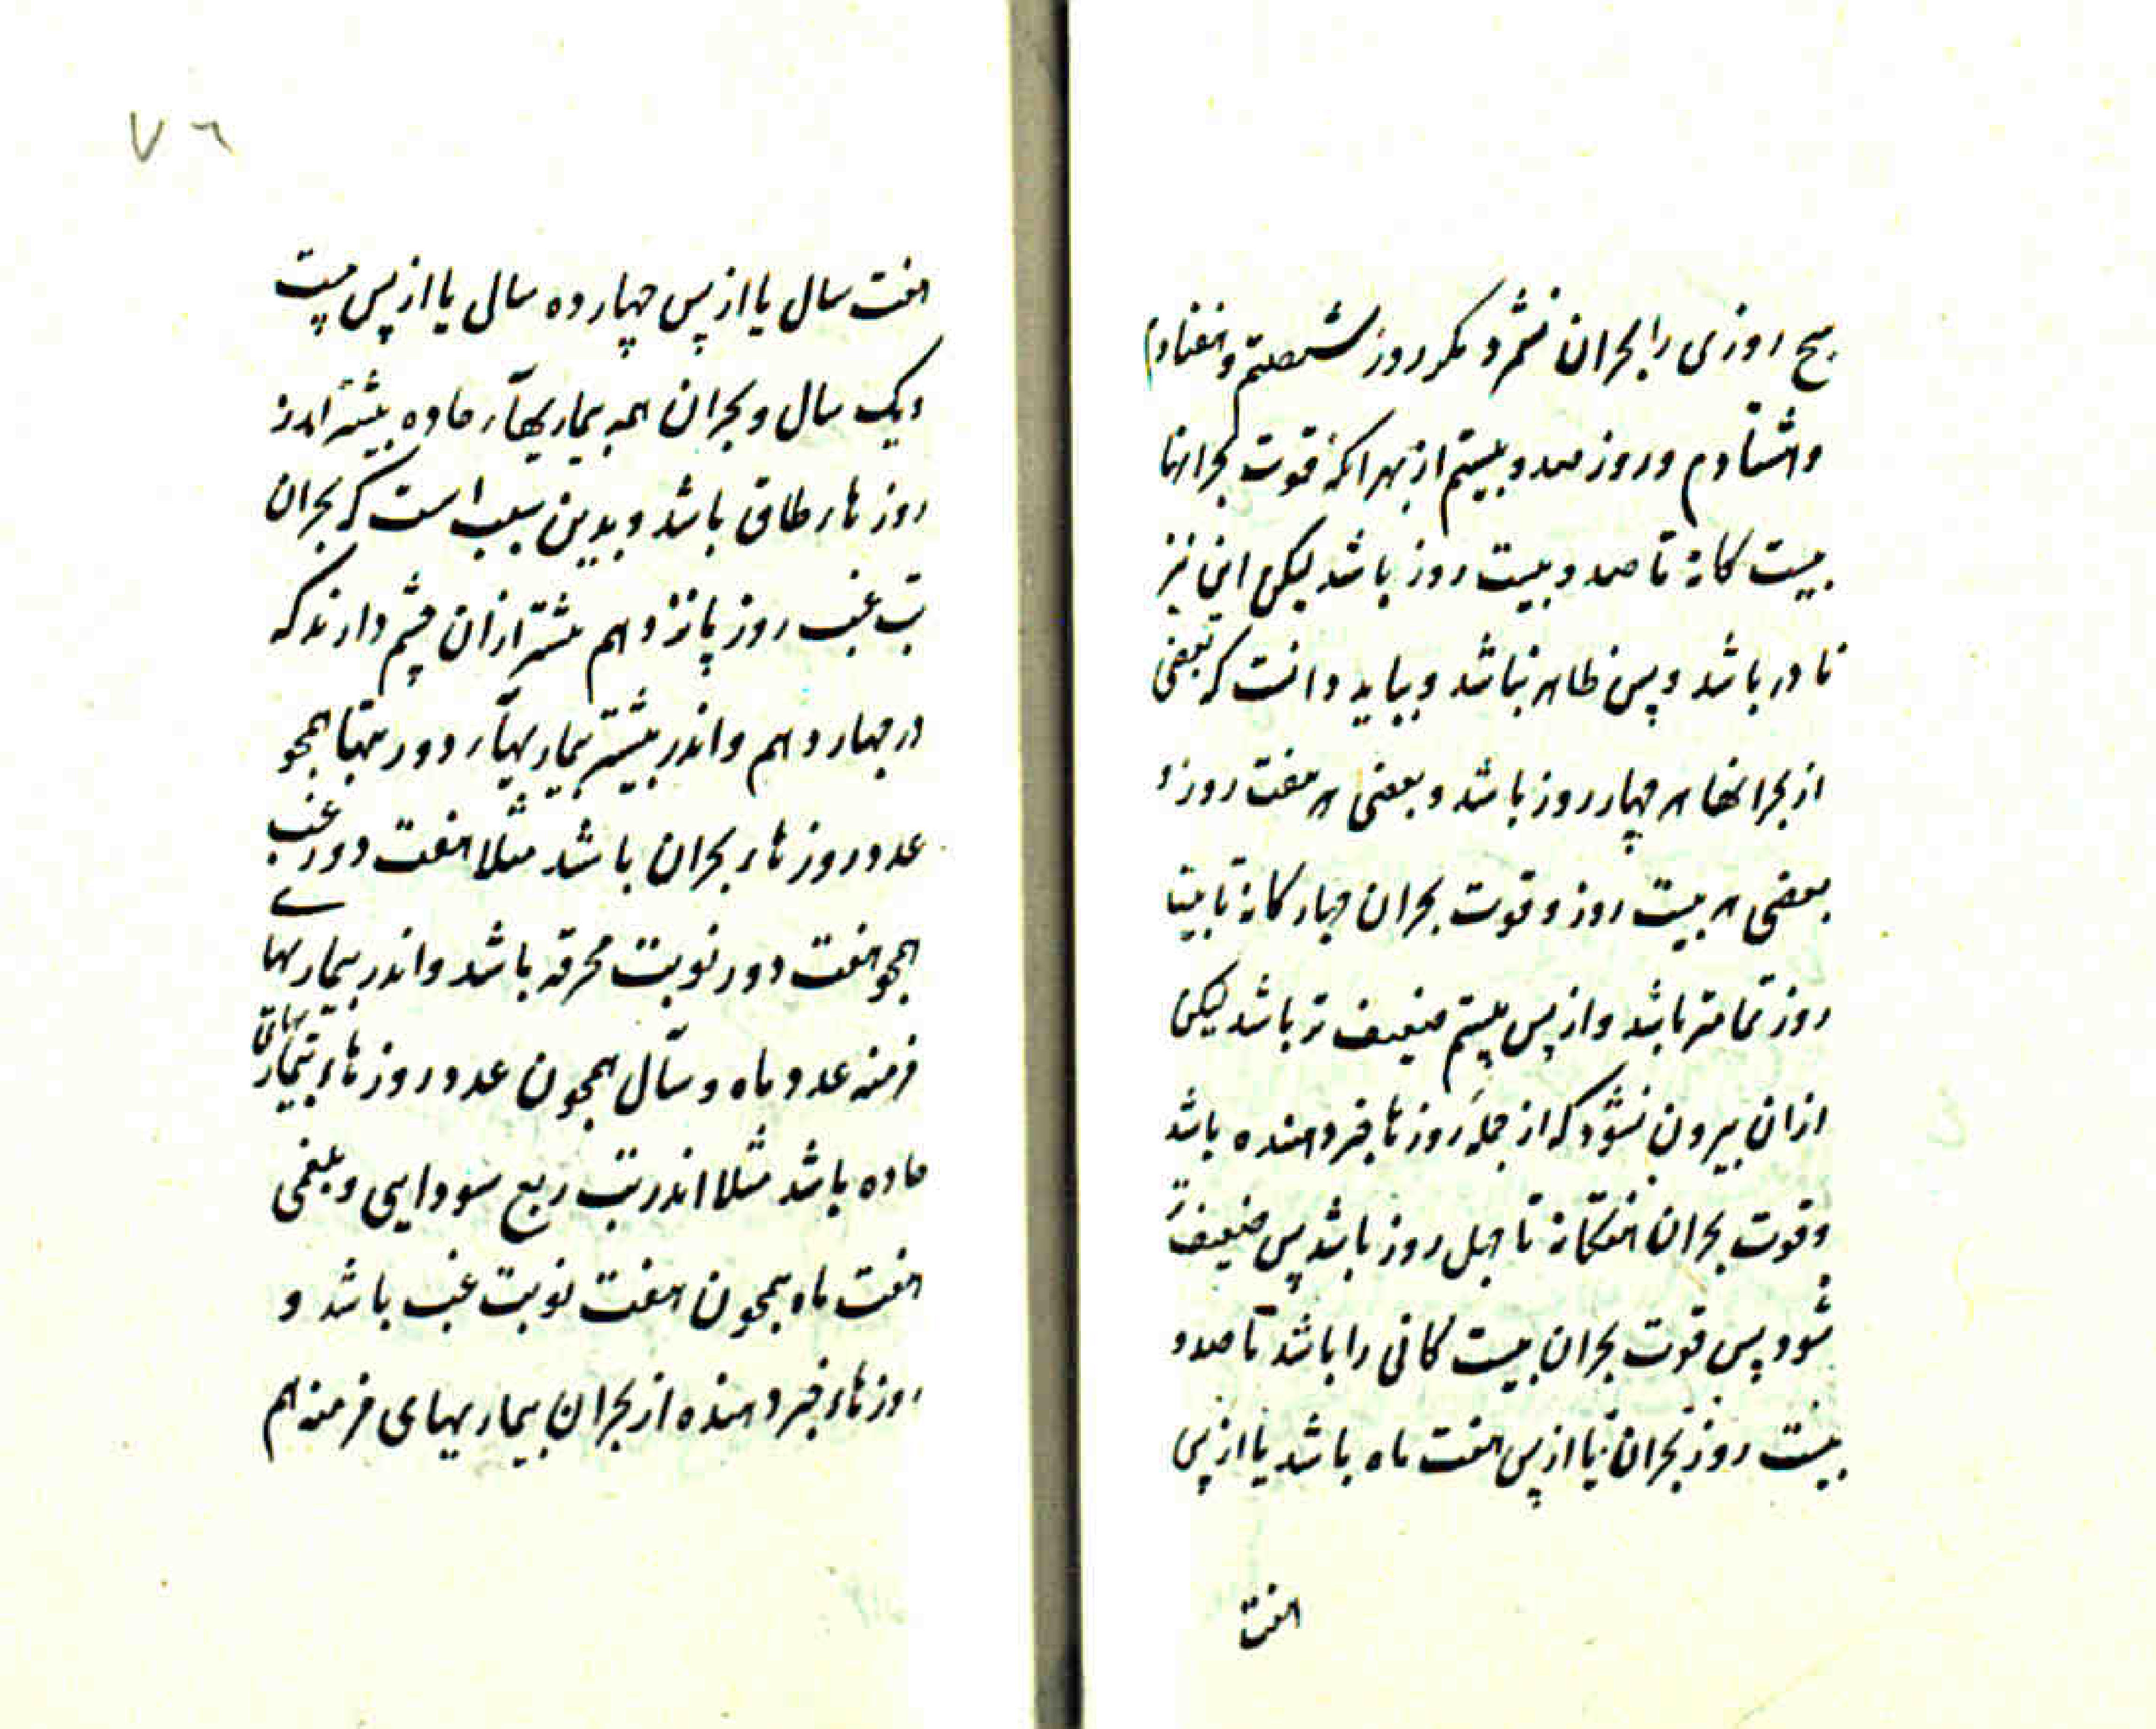 هیچ روزی را بحران نشمرد مکر روز شصتم و هفتادم
و هشتادم و روز صد و بیستم از بهر انکه قوت بحرانها
بیست کانه تا صد و بیست روز باشد لیکن این نیز
نادر باشد و بس ظاهر نباشد و بباید دانست که بعضی
از بحرانها هر چهار روز باشد و بعضی هر هفت روز و
بعضی هر بیست روز و قوت بحران چهار کانه تا بیست
روز تمامتر باشد و از پس بیستم ضعیف تر باشد لیکن
ازان بیرون نشود که از جمله روزها خبر دهنده باشد
و قوت بحران هفتکانه تا چهل روز باشد پس ضعیف تر
شود پس قوت بحران بیست کانی را باشد تا صد و
بیست روز بحران یا از پس هفت ماه باشد یا از پس
هفت
٧٦
هفت سال یا از پس چهارده سال یا از پس بیست
و یک سال و بحران همه بیماریهاء حاده بیشتر اندر
روزهاء طاق باشد و بدین سبب است که بحران
تب غب روز پانزدهم بیشتر ازان چشم دارند که
در چهاردهم و اندر بیشتر بیماریهاء دور تبها همچو
عدد روزهاء بحران باشد مثلا هفت دور غب
همچو هفت دور نوبت محرقه باشد و اندر بیماریها
مزمنه عدد ماه و سال همچون عدد روزهاء بیماریهای
حاده باشد مثلا اندر تب ربع سودایی و بلغمی
هفت ماه همچون هفت نوبت غب باشد و
روزهاء خبر دهنده از بحران بیماریهای مزمنه هم